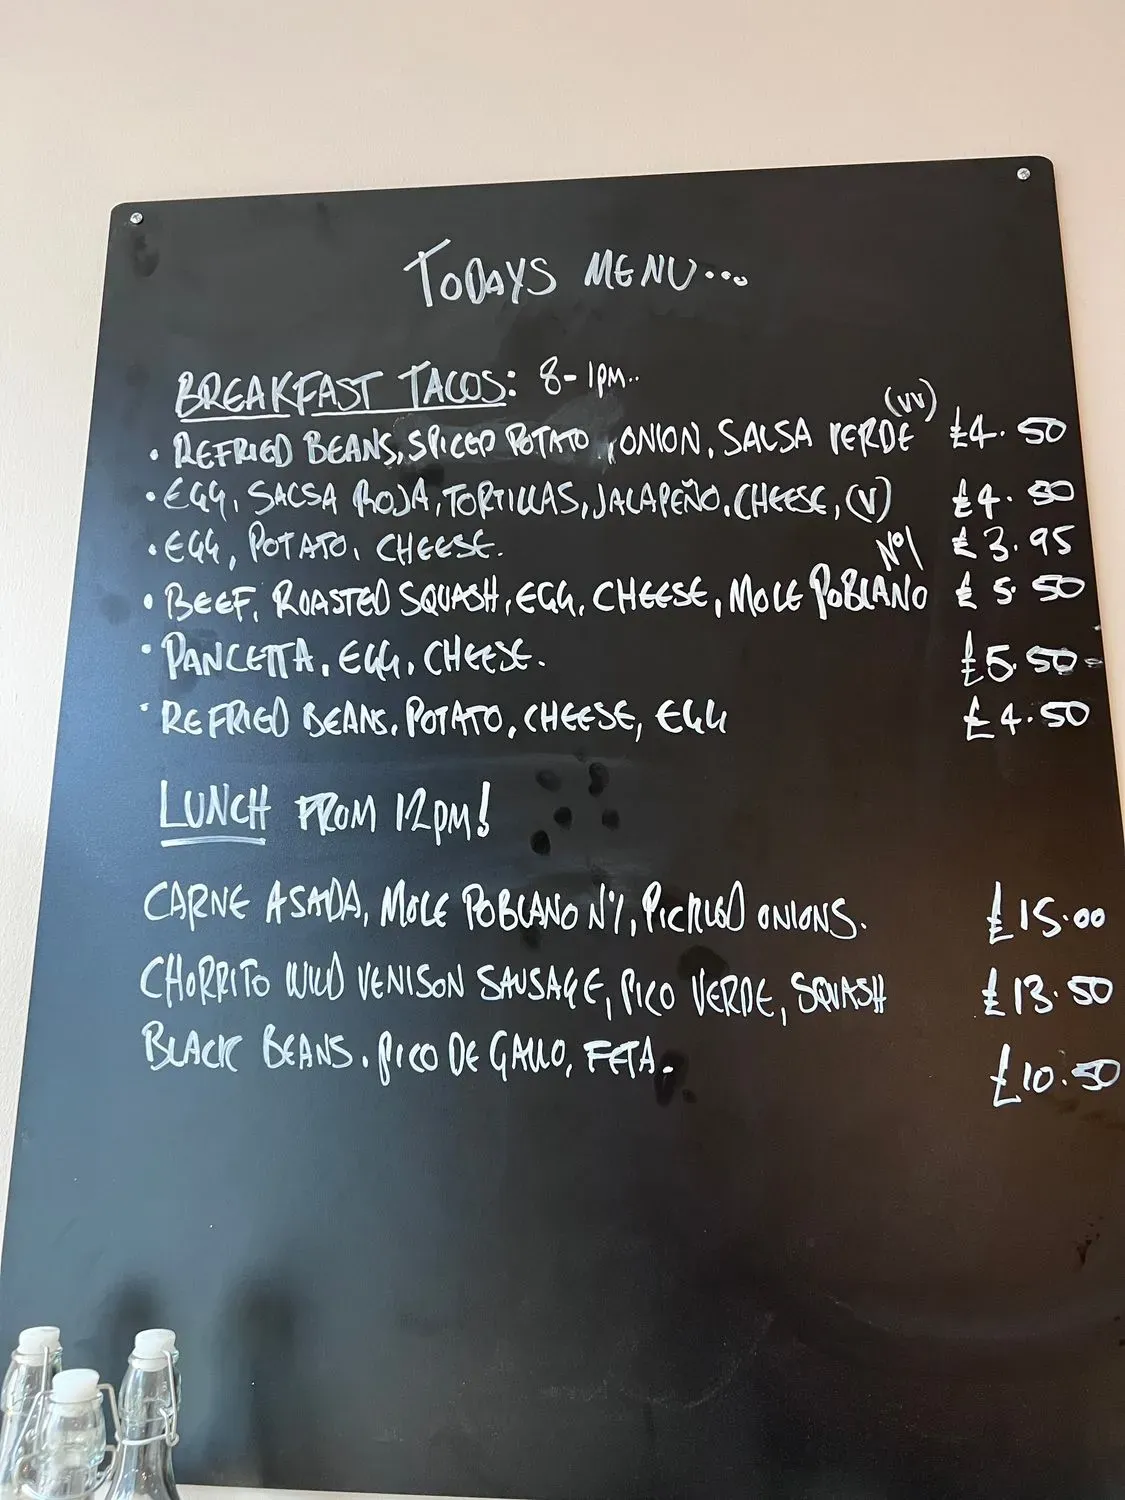 TODAYS MENU...
BREAKFAST TACOS: 8-1PM..
• REFRIED BEANS, SPICED POTATO, ONION, SALSA VERDE (VV) £4.50
• EGG, SALSA ROJA, TORTILLAS, JALAPEÑO, CHEESE, (V) £4.50
• EGG, POTATO, CHEESE. £3.95
• BEEF, ROASTED SQUASH, EGG, CHEESE, MOLE POBLANO Nº1 £5.50
• PANCETTA, EGG, CHEESE. £5.50
• REFRIED BEANS, POTATO, CHEESE, EGG £4.50
LUNCH FROM 12PM!
CARNE ASADA, MOLE POBLANO Nº1, PICKLED ONIONS. £15.00
CHORRITO WILD VENISON SAUSAGE, PICO VERDE, SQUASH £13.50
BLACK BEANS. PICO DE GALLO, FETA. £10.50